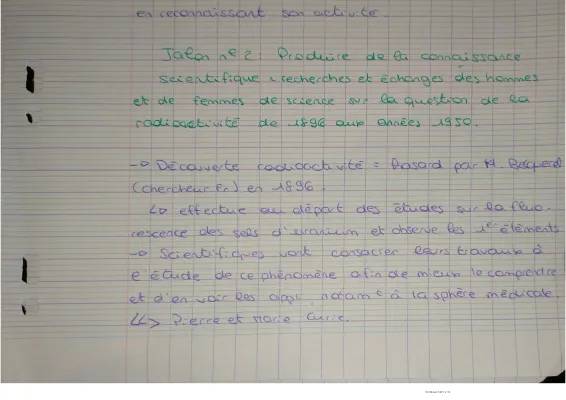 en reconnaissant son activité.
Jalon n°2 : Produire de la connaissance
scientifique : recherches et échanges des hommes
et de femmes de science sur la question de la
radioactivité de 1896 aux années 1950.
-> Découverte radioactivité = hasard par H. Becquerel
(chercheur Fr) en 1896.
↳ effectue au départ des études sur la fluo-
rescence des sels d'uranium et observe les 1er éléments
-> Scientifiques vont consacrer leurs travaux à
l'étude de ce phénomène afin de mieux le comprendre
et d'en voir les appl. notamt à la sphère médicale.
↳> Pierre et Marie Curie.